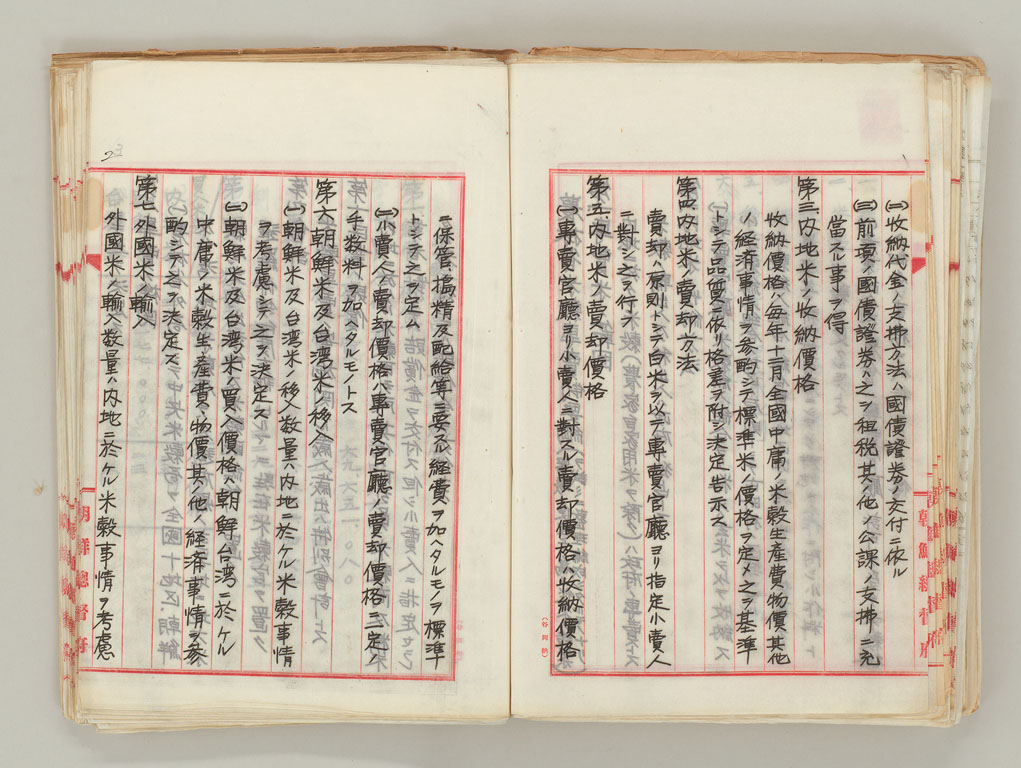 (二)收納代金ノ支拂方法ハ國債證券ノ交付ニ依ル
(三)前項ノ國債證券ハ之ヲ租税其ノ他ノ公課ノ支拂ニ充
當スル事ヲ得
第三、内地米ノ收納價格
收納價格ハ毎年十一月全國中庸ノ米穀生産費物價其他
ノ經済事情ヲ參酌シテ標準米ノ價格ヲ定メ之ヲ基準
トシテ品質ニ依リ格差ヲ附シ決定告示ス
第四、内地米ノ賣却方法
賣却ノ原則トシテ白米ヲ以テ專賣官廳ヨリ指定小賣人
ニ對シ之ヲ行フ
第五、内地米ノ賣却價格
(一)專賣官廳ヨリ小賣人ニ對スル賣却價格ハ收納價格
ニ保管、搗精及配給等ニ要スル經費ヲ加ヘタルモノヲ標準
トシテ之ヲ定ム
(二)小賣人ノ賣却價格ハ專賣官廳ノ賣却價格ニ一定ノ
手數料ヲ加ヘタルモノトス
第六、朝鮮米及台湾米ノ移入
(一)朝鮮米及台湾米ノ移入數量ハ内地ニ於ケル米穀事情
ヲ考慮シテ之ヲ決定ス
(二)朝鮮米及台湾米ノ買入價格ハ朝鮮台湾ニ於ケル
中庸ノ米穀生産費、物價其ノ他ノ經済事情ヲ參
酌シテ之ヲ決定ス
第七、外國米ノ輸入
外國米ノ輸入數量ハ内地ニ於ケル米穀事情ヲ考慮
朝鮮總督府